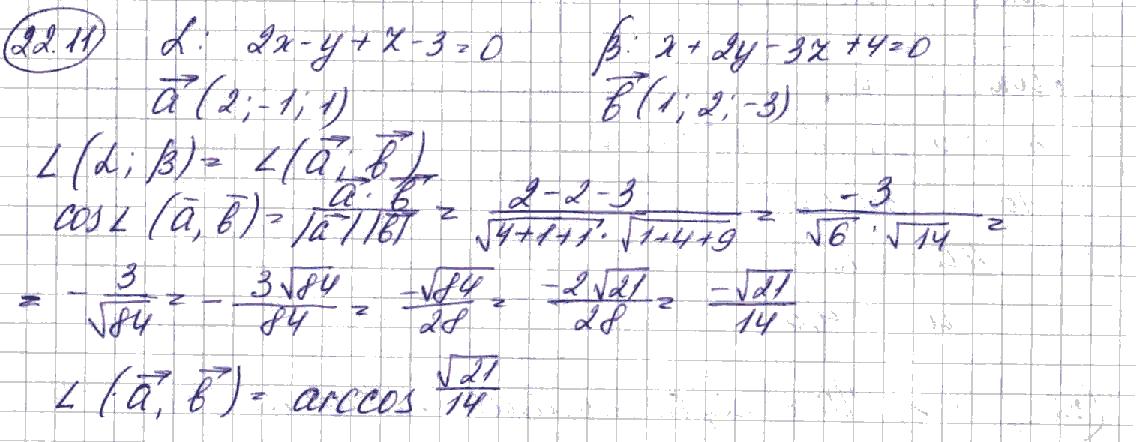 22.11 α: 2x - y + z - 3 = 0 β: x + 2y - 3z + 4 = 0
a⃗ (2; -1; 1) b⃗ (1; 2; -3)
∠(α; β) = ∠(a⃗; b⃗)
cos∠(a̅, b̅) = a̅·b̅ / |a̅||b̅| = (2-2-3) / (√(4+1+1) · √(1+4+9)) = -3 / (√6 · √14) =
= - 3/√84 = - 3√84/84 = -√84/28 = -2√21/28 = -√21/14
∠(a⃗, b⃗) = arccos √21/14